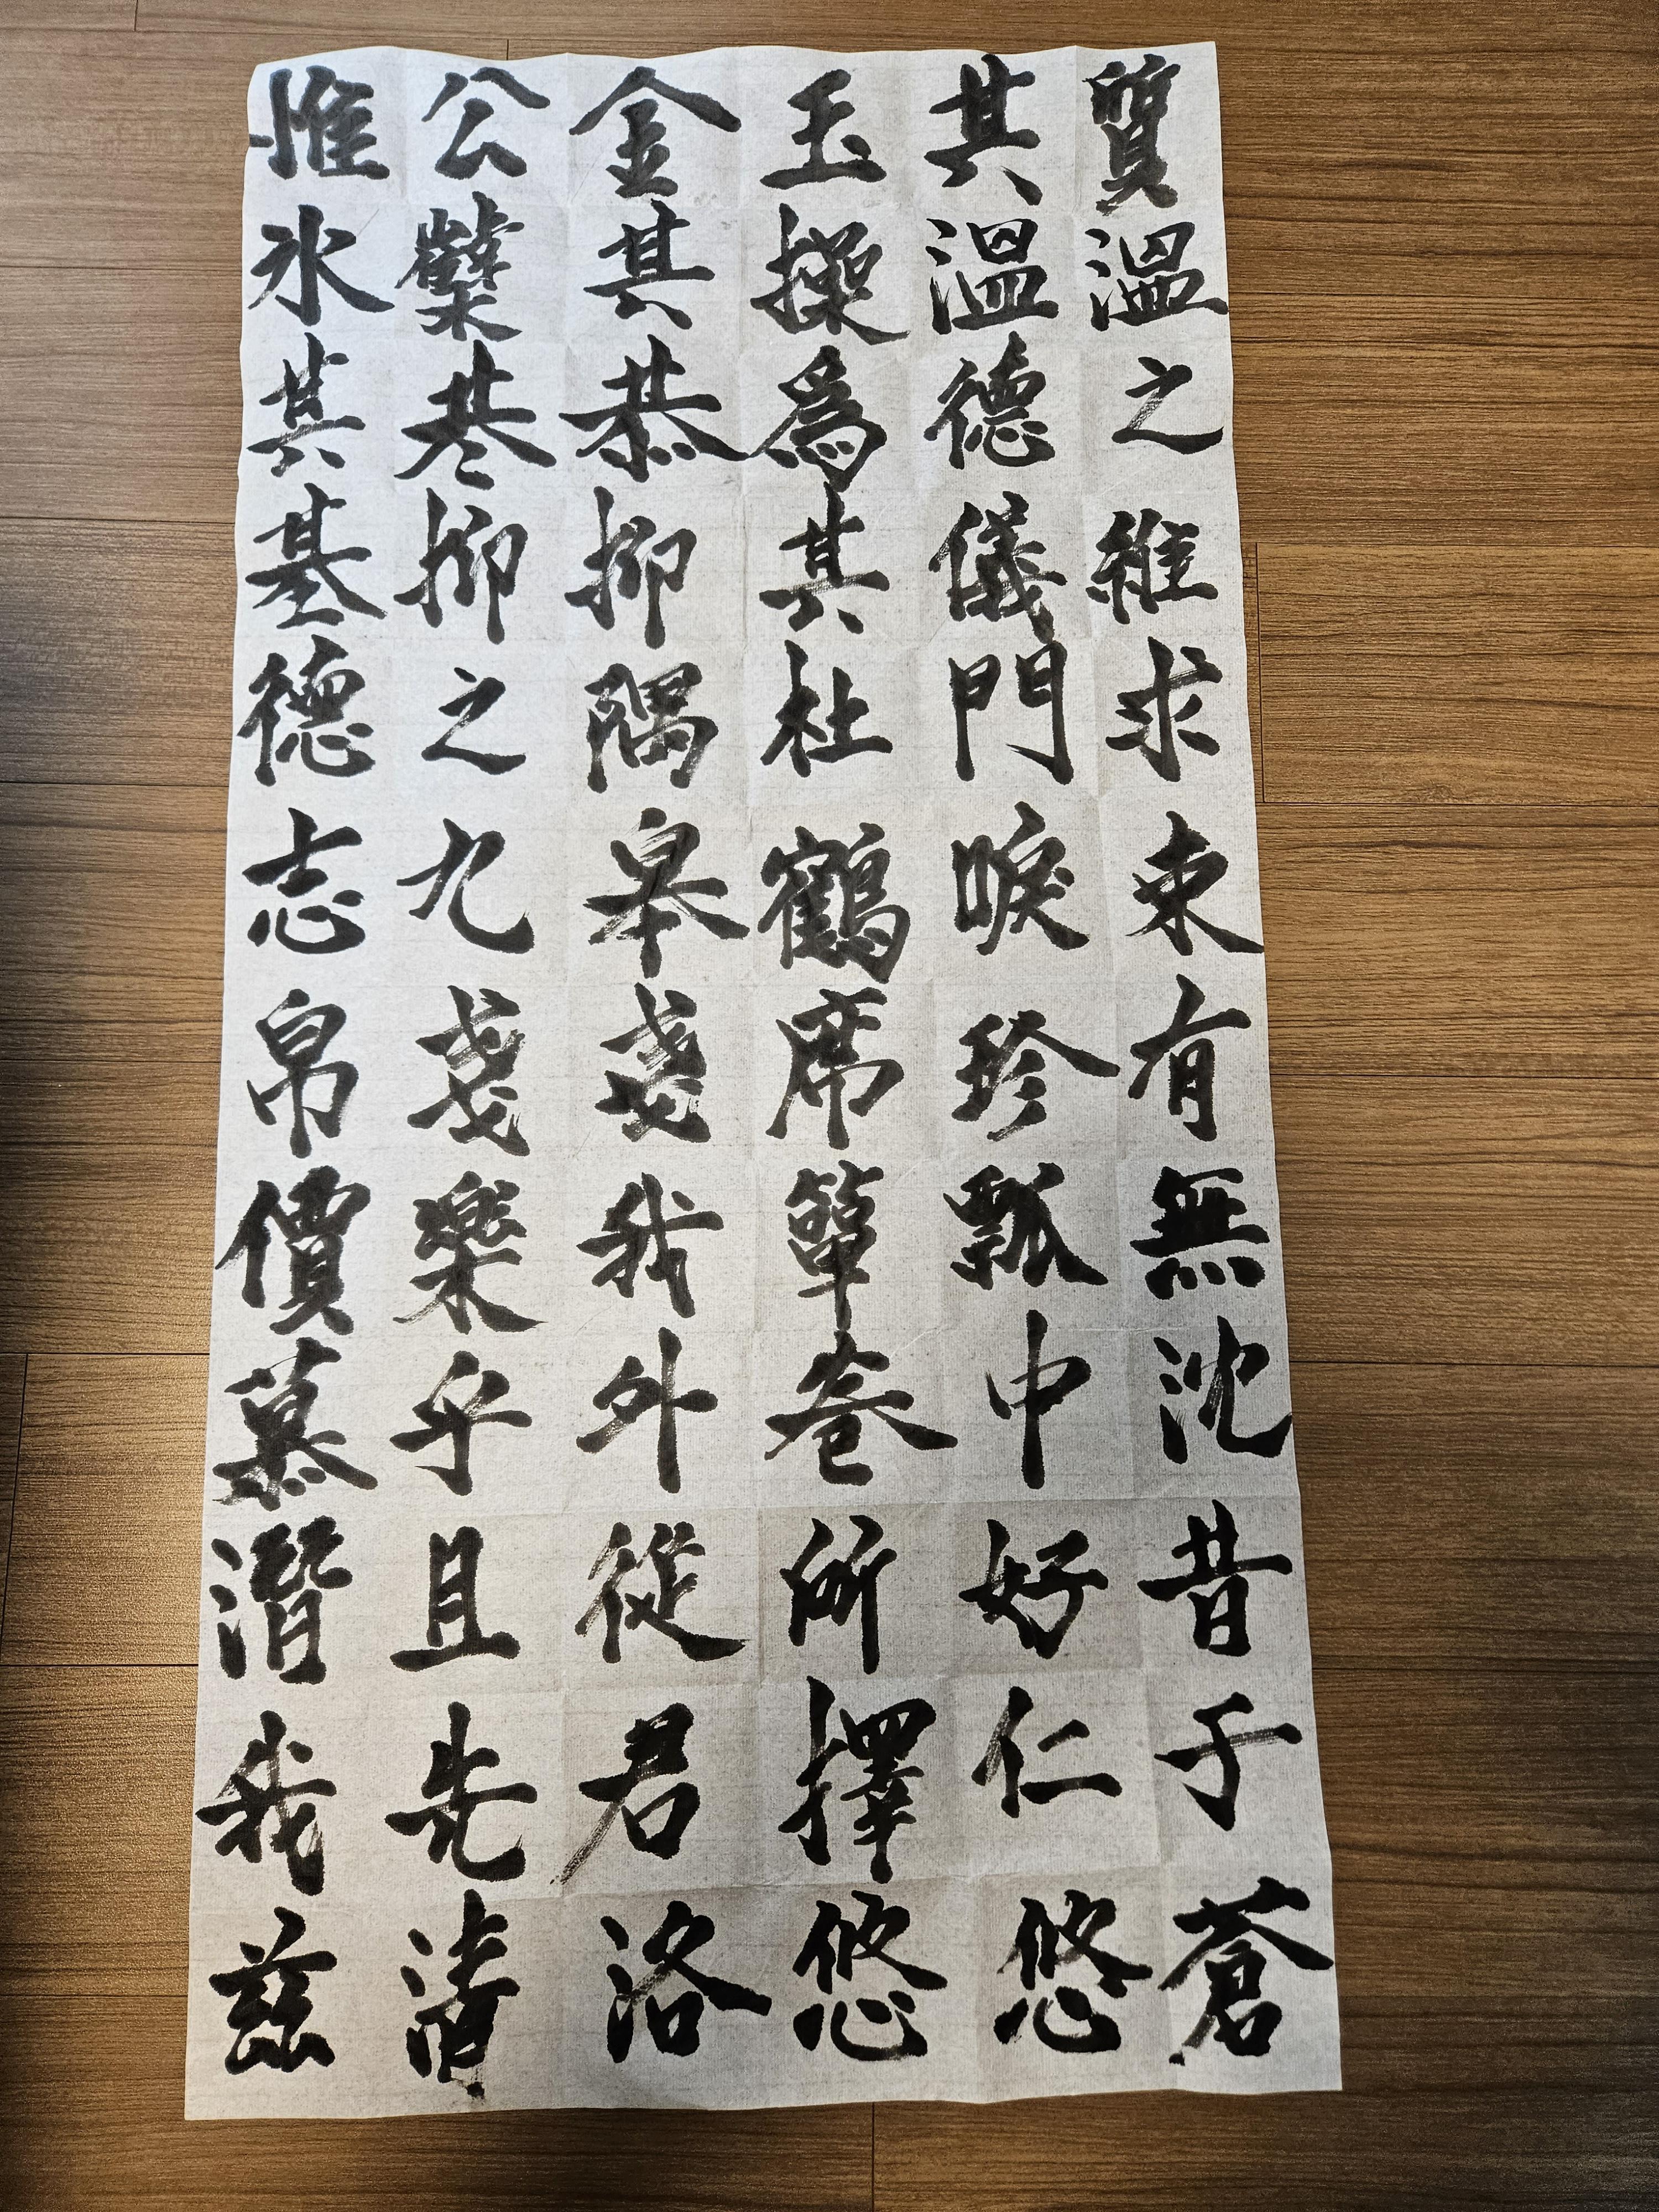 質溫之維求束有無沈昔子蒼
其溫德儀門唳珍瓢中好仁悠
玉操爲其杜鶴席簞巷所擇悠
金其恭抑隅皋戔我外從君洛
公櫱巷抑之九戔樂乎且先淸
惟氷其基德志帛價慕潛我玆